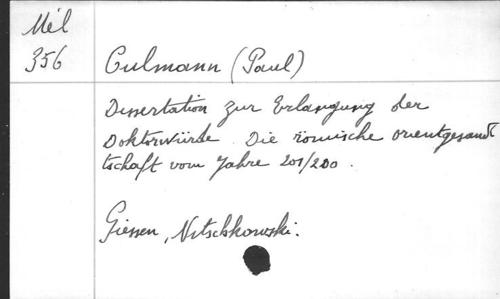 Mél
356
Culmann (Paul)
Dissertation zur Erlangung der
Doktorwürde. Die römische orientgesand
tschaft vom Jahre 201/200.
Giessen, Nitschkowski.